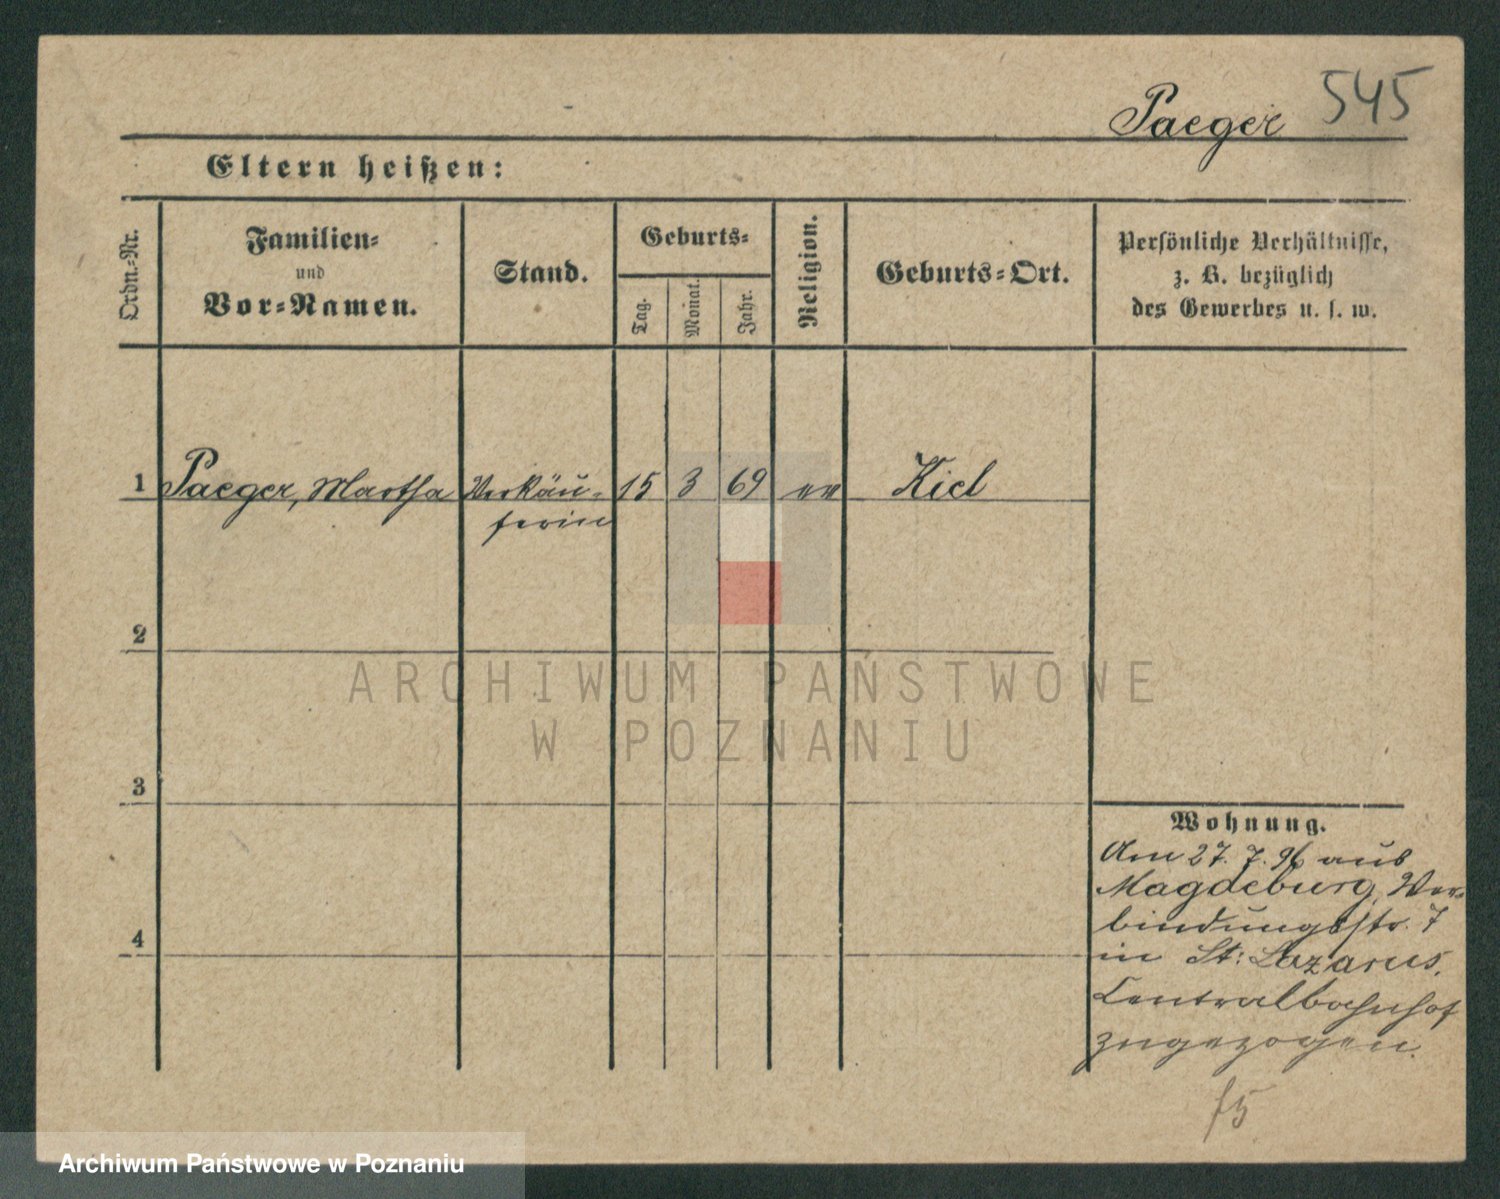 Paeger 545
Eltern heißen:
Ordn.-Nr.
Familien-
und
Vor-Namen.
Stand.
Geburts-
Tag.
Monat.
Jahr.
Religion.
Geburts-Ort.
Persönliche Verhältnisse,
z. B. bezüglich
des Gewerbes u. s. w.
1 Paeger, Martha Verkäu- 15 3 69 ev Kiel
ferin
2
ARCHIWUM PAŃSTWOWE
W POZNANIU
3
4
Wohnung.
Am 27. 7. 96 aus
Magdeburg, Ver-
bindungsstr. 7
in St: Lazarus,
Centralbahnhof
zugezogen.
Archiwum Państwowe w Poznaniu